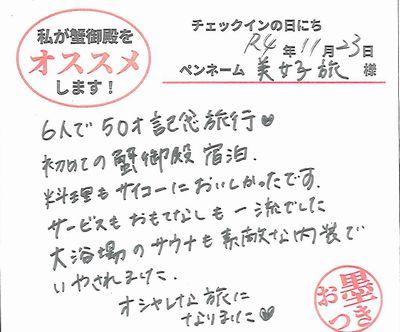 私が蟹御殿を
オススメ
します！
チェックインの日にち
R4年11月23日
ペンネーム 美女子旅 様
6人で50才記念旅行♥
初めての蟹御殿宿泊.
料理もサイコーにおいしかったです.
サービスもおもてなしも一流でした
大浴場のサウナも素敵な内装で
いやされました.
オシャレな旅に
なりました♥
お墨つき